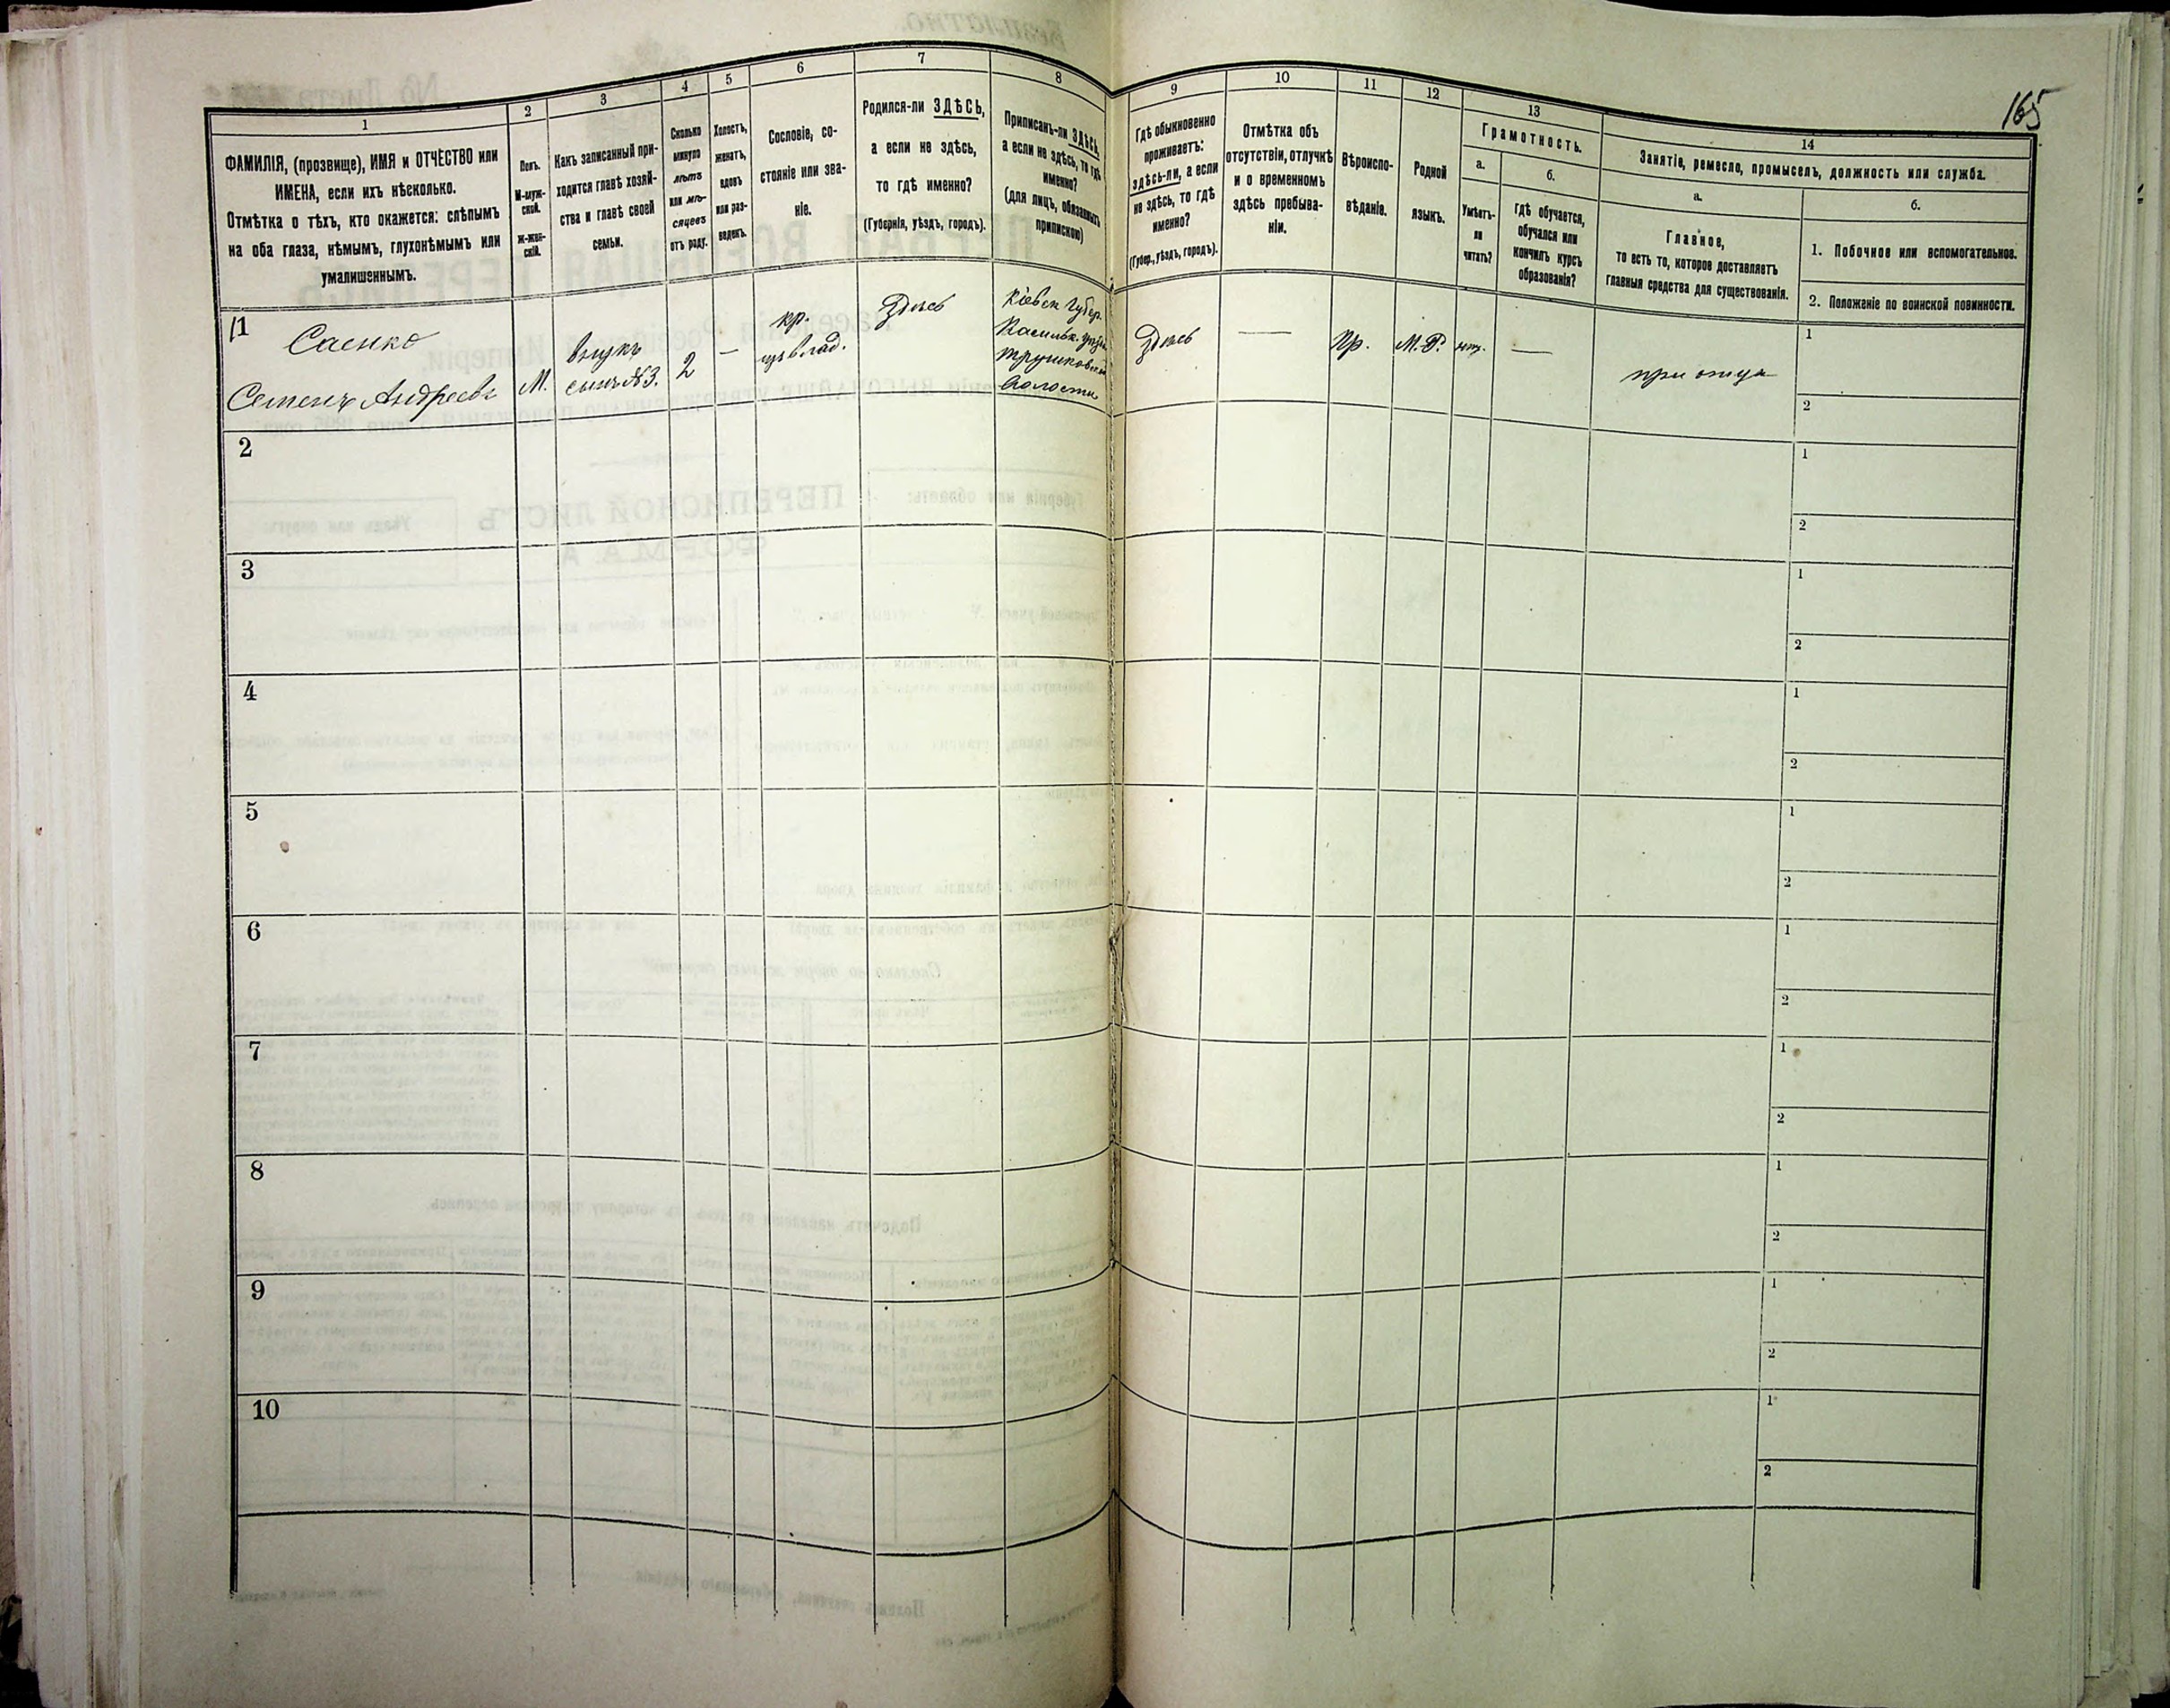 165
1
2
3
4
5
6
7
8
9
10
11
12
13
14
ФАМИЛІЯ, (прозвище), ИМЯ и ОТЧЕСТВО или
ИМЕНА, если ихъ нѣсколько.
Отмѣтка о тѣхъ, кто окажется: слѣпымъ
на оба глаза, нѣмымъ, глухонѣмымъ или
умалишеннымъ.
Полъ.
М-муж-
ской.
Ж-жен-
скій.
Какъ записанный при-
ходится главѣ хозяй-
ства и главѣ своей
семьи.
Сколько
минуло
лѣтъ
или мѣ-
сяцевъ
отъ роду.
Холостъ,
женатъ,
вдовъ
или раз-
веденъ.
Сословіе, со-
стояніе или зва-
ніе.
Родился-ли ЗДѢСЬ,
а если не здѣсь,
то гдѣ именно?
(Губернія, уѣздъ, городъ).
Приписанъ-ли ЗДѢСЬ,
а если не здѣсь, то гдѣ
именно?
(для лицъ, обязанныхъ
припискою)
Гдѣ обыкновенно
проживаетъ:
здѣсь-ли, а если
не здѣсь, то гдѣ
именно?
(Губер., уѣздъ, городъ).
Отмѣтка объ
отсутствіи, отлучкѣ
и о временномъ
здѣсь пребыва-
ніи.
Вѣроиспо-
вѣданіе.
Родной
языкъ.
Грамотность.
а.
Умѣетъ-
ли
читать?
б.
гдѣ обучается,
обучался или
кончилъ курсъ
образованія?
Занятіе, ремесло, промыселъ, должность или служба.
а.
Главное,
то есть то, которое доставляетъ
главныя средства для существованія.
б.
1. Побочное или вспомогательное.
2. Положеніе по воинской повинности.
1
Саенко
Семенъ Андреевъ
М.
внукъ
сынъ №3.
2
—
кр.
изъ влад.
Здѣсь
Кіевск. Губер.
Васильк. уѣзд.
Трушковской
Волости
Здѣсь
—
Пр.
М.Р.
нѣт.
—
при отцѣ
1
2
2
1
2
3
1
2
4
1
2
5
1
2
6
1
2
7
1
2
8
1
2
9
1
2
10
1
2